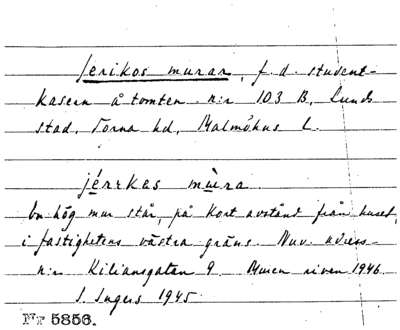 Jerikos murar, f. d. student-
kasern å tomten n:r 103 B, Lunds
stad, Torna hd, Malmöhus l.
jérrkas mùra.
En hög mur står, på kort avstånd från huset,
i fastighetens västra gräns. Nuv. adress-
n:r Kiliansgatan 9. Muren riven 1946.
S. Ingers 1945.
Nr 5856.